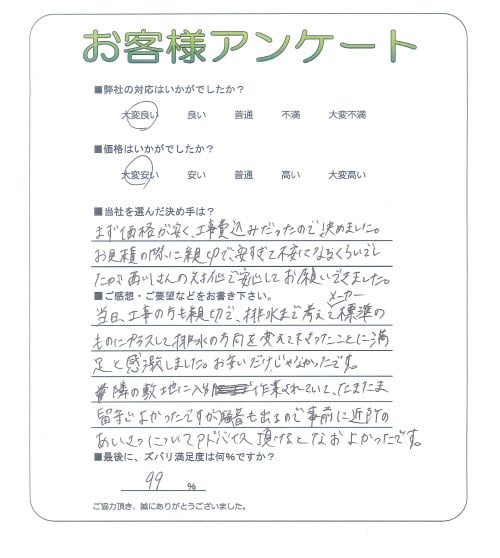 お客様アンケート
■弊社の対応はいかがでしたか？
大変良い 良い 普通 不満 大変不満
■価格はいかがでしたか？
大変安い 安い 普通 高い 大変高い
■当社を選んだ決め手は？
まず価格が安く、工事費込みだったので決めました。
お見積の際に親切で、安すぎて不安になるくらいでし
たが西川さんの対応で安心してお願いできました。
■ご感想・ご要望などをお書き下さい。
メーカー
当日、工事の方も親切で、排水まで考えて標準の
ものにプラスして排水の方向を変えて下さったことに満
足と感激しました。お安いだけじゃなかったです。
隣の敷地に入り作業されていて、たまたま
留守でよかったですが騒音も出るので事前に近所の
あいさつについてアドバイス頂けるとなおよかったです。
■最後に、ズバリ満足度は何％ですか？
99 %
ご協力頂き、誠にありがとうございました。